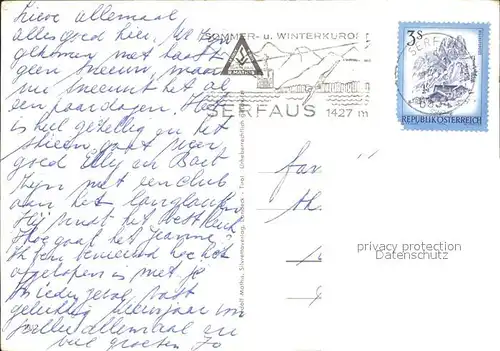 Lieve allemaal
alles goed hier. We zijn
gekomen met haast
geen sneeuw, maar
nu sneeuwt het al
een paar dagen. Het
is heel gezellig en het
skieen gaat weer
goed Elly en Bart
zijn met een club
aan het langlaufen
Hij vindt het best leuk
Hoe gaat het Jeanny?
Ik ben benieuwd hoe het
afgelopen is met je
vast
gelukkig nieuwjaar voor
jullie allemaal en
veel groeten Jo
SOMMER- u. WINTERKURORT
SERFAUS 1427 m
3 S
REPUBLIK ÖSTERREICH
Rudolf Mathis, Silvrettaverlag, Landeck - Tirol Urheberrechtlich
fam
th.
privacy protection
Datenschutz